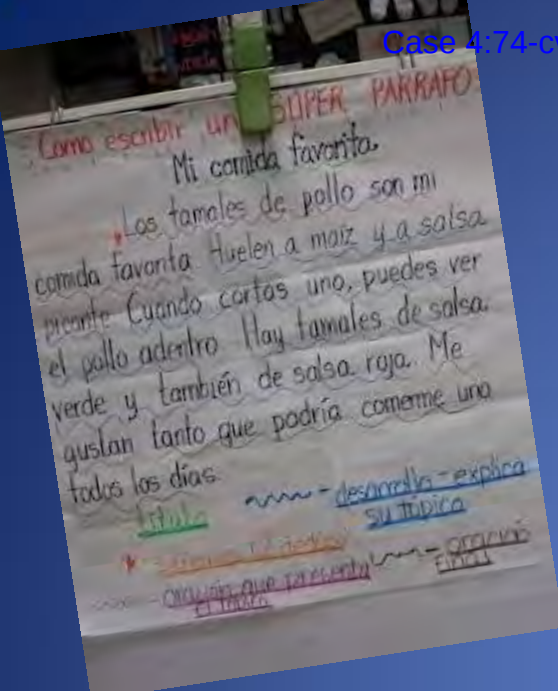 Case 4:74-c
Como escribir un SUPER PARRAFO
Mi comida favorita.
Los tamales de pollo son mi
comida favorita. Huelen a maíz y a salsa
picante. Cuando cortas uno, puedes ver
el pollo adentro. Hay tamales de salsa
verde y también de salsa roja. Me
gustan tanto que podría comerme uno
todos los días.
título
desarrolla - explica
su tópico
oración que presenta
el tópico
oración
final